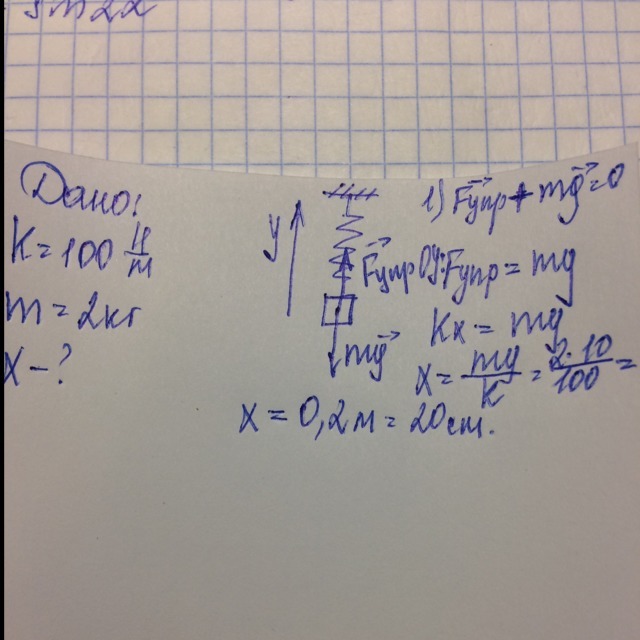 sin2α
Дано:
K = 100 Н/m
m = 2кг
X - ?
y
Fупр
mg
1) Fупр + mg = 0
Oy: Fупр = mg
Kx = mg
X = mg/K = 2·10/100 =
X = 0,2м = 20см.